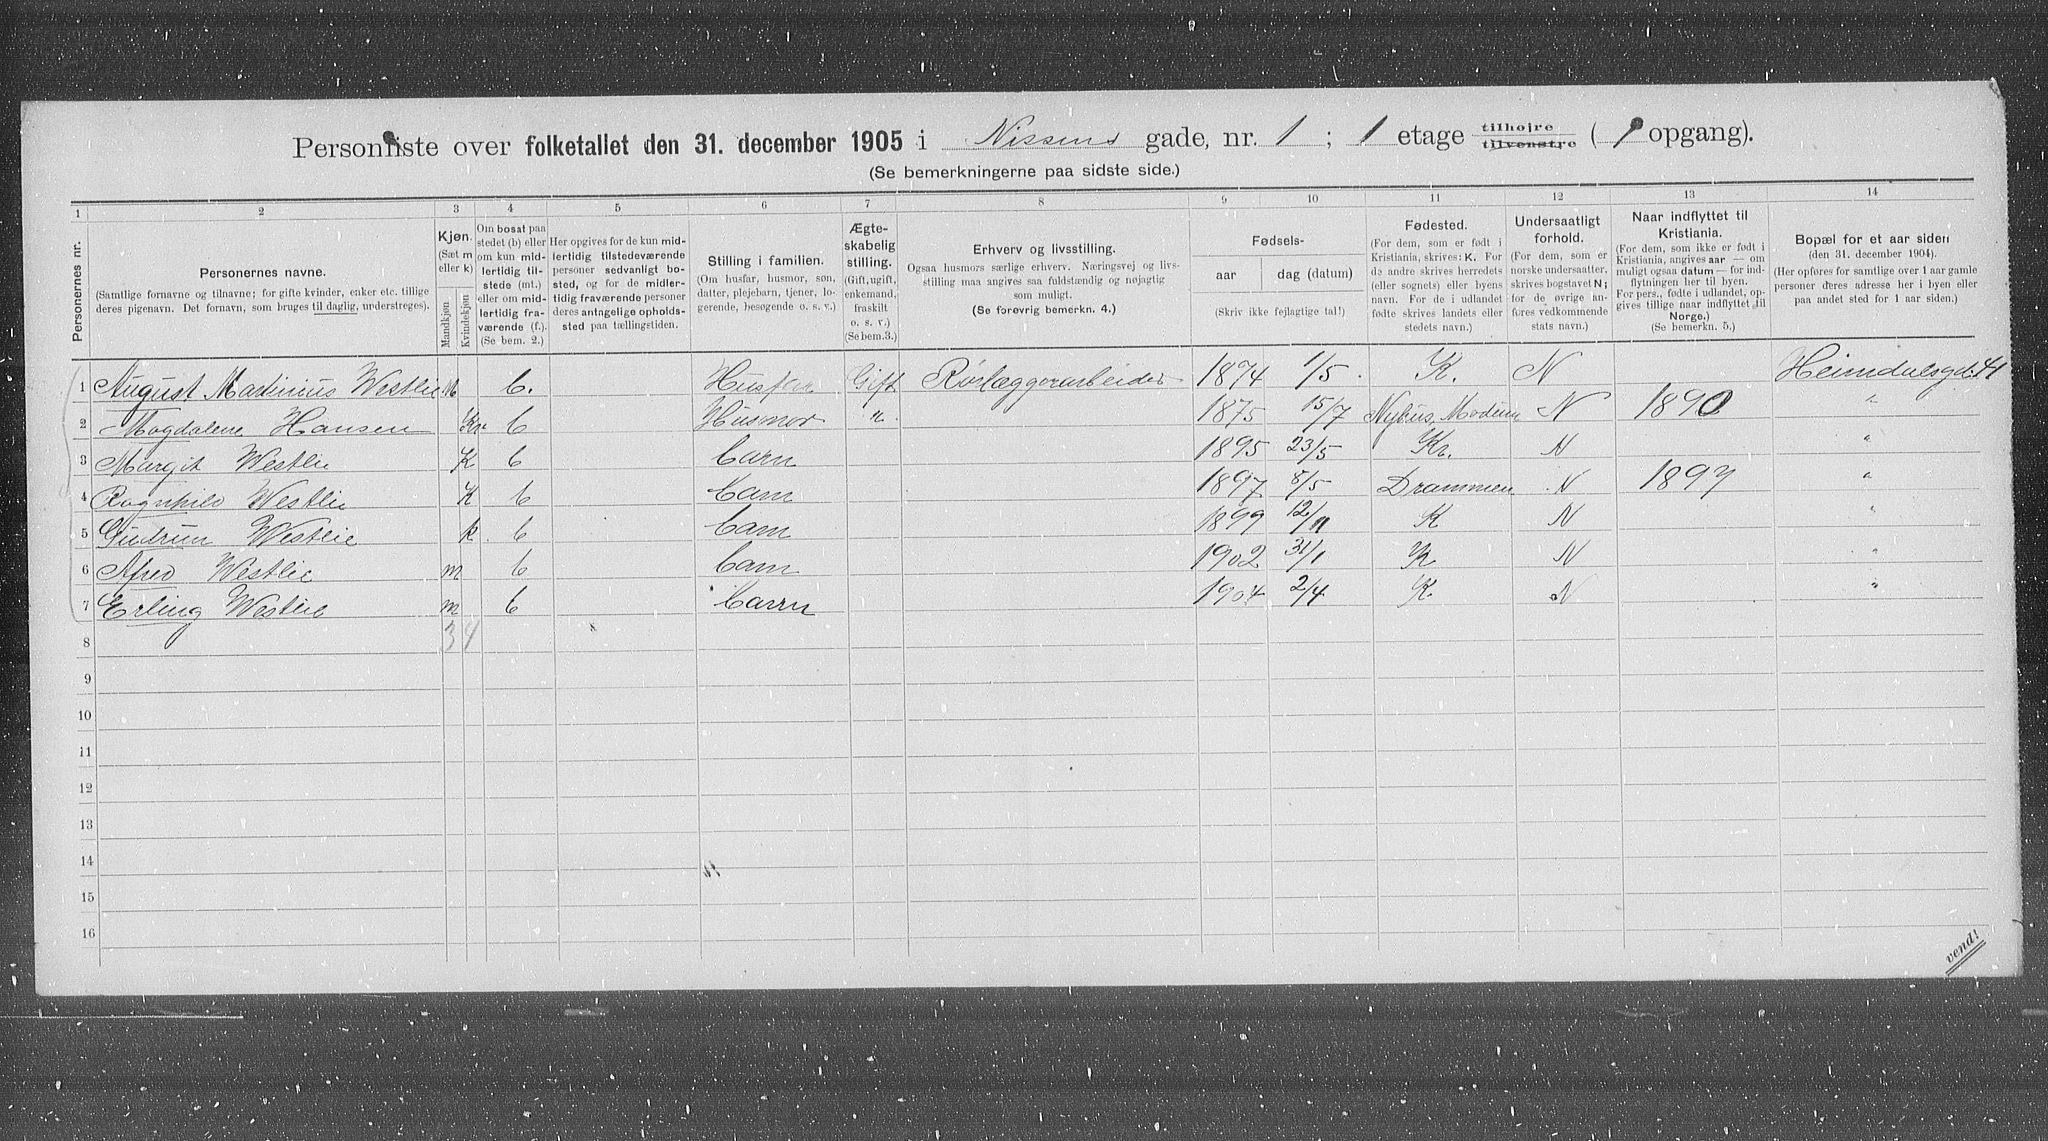 Personliste over folketallet den 31. december 1905 i Nissens gade, nr. 1 ; 1 etage tilhøjre tilvenstre ( 1 opgang).
(Se bemerkningerne paa sidste side.)
1 2 3 4 5 6 7 8 9 10 11 12 13 14
Personernes nr.
Personernes navne.
(Samtlige fornavne og tilnavne; for gifte kvinder, enker etc. tillige
deres pigenavn. Det fornavn, som bruges til daglig, understreges).
Kjøn.
(Sæt m
eller k)
Mandkjøn
Kvindekjøn
Om bosat paa
stedet (b) eller
om kun mid-
lertidig til-
stede (mt.)
eller om mid-
lertidig fra-
værende (f.).
(Se bem. 2.)
Her opgives for de kun mid-
lertidig tilstedeværende
personer sedvanligt bo-
sted, og for de midler-
tidig fraværende personer
deres antagelige opholds-
sted paa tællingstiden.
Stilling i familien.
(Om husfar, husmor, søn,
datter, plejebarn, tjener, lo-
gerende, besøgende o. s. v.)
Ægte-
skabelig
stilling.
(Gift, ugift,
enkemand,
fraskilt
o. s. v.)
(Se bem.3.)
Erhverv og livsstilling.
Ogsaa husmors særlige erhverv. Næringsvej og livs-
stilling maa angives saa fuldstændig og nøjagtig
som muligt.
(Se forøvrig bemerkn. 4.)
Fødsels-
aar dag (datum)
(Skriv ikke fejlagtige tal!)
Fødested.
(For dem, som er født i
Kristiania, skrives: K. For
de andre skrives herredets
(eller sognets) eller byens
navn. For de i udlandet
fødte skrives landets eller
stedets navn.)
Undersaatligt
forhold.
(For dem, som er
norske undersaatter,
skrives bogstavet N;
for de øvrige an-
føres vedkommende
stats navn.)
Naar indflyttet til
Kristiania.
(For dem, som ikke er født i
Kristiania, angives aar — om
muligt ogsaa datum — for ind-
flytningen her til byen.
For pers., fødte i udlandet, op-
gives tillige naar indflyttet til
Norge.)
(Se bemerkn. 5.)
Bopæl for et aar siden
(den 31. december 1904).
(Her opføres for samtlige over 1 aar gamle
personer deres adresse her i byen eller
paa andet sted for 1 aar siden.)
1 August Martinius Westlie M b. Husfar Gift Rørlæggerarbeider 1874 1/5 K. N Heimdalsgd. 41
2 Magdalene Hansen Kv b Husmor " 1875 15/7 Nykus, Modum N 1890 "
3 Margit Westlie K b Barn 1895 23/5 Kr. N "
4 Ragnhild Westlie K b Barn 1897 8/5 Drammen N 1897 "
5 Gudrun Westlie k b Barn 1899 12/11 K N "
6 Afred Westlie m b Barn 1902 31/1 K N "
7 Erling Westlie m b Barn 1904 2/4 K N "
8 3 4
9
10
11
12
13
14
15
16
vend!